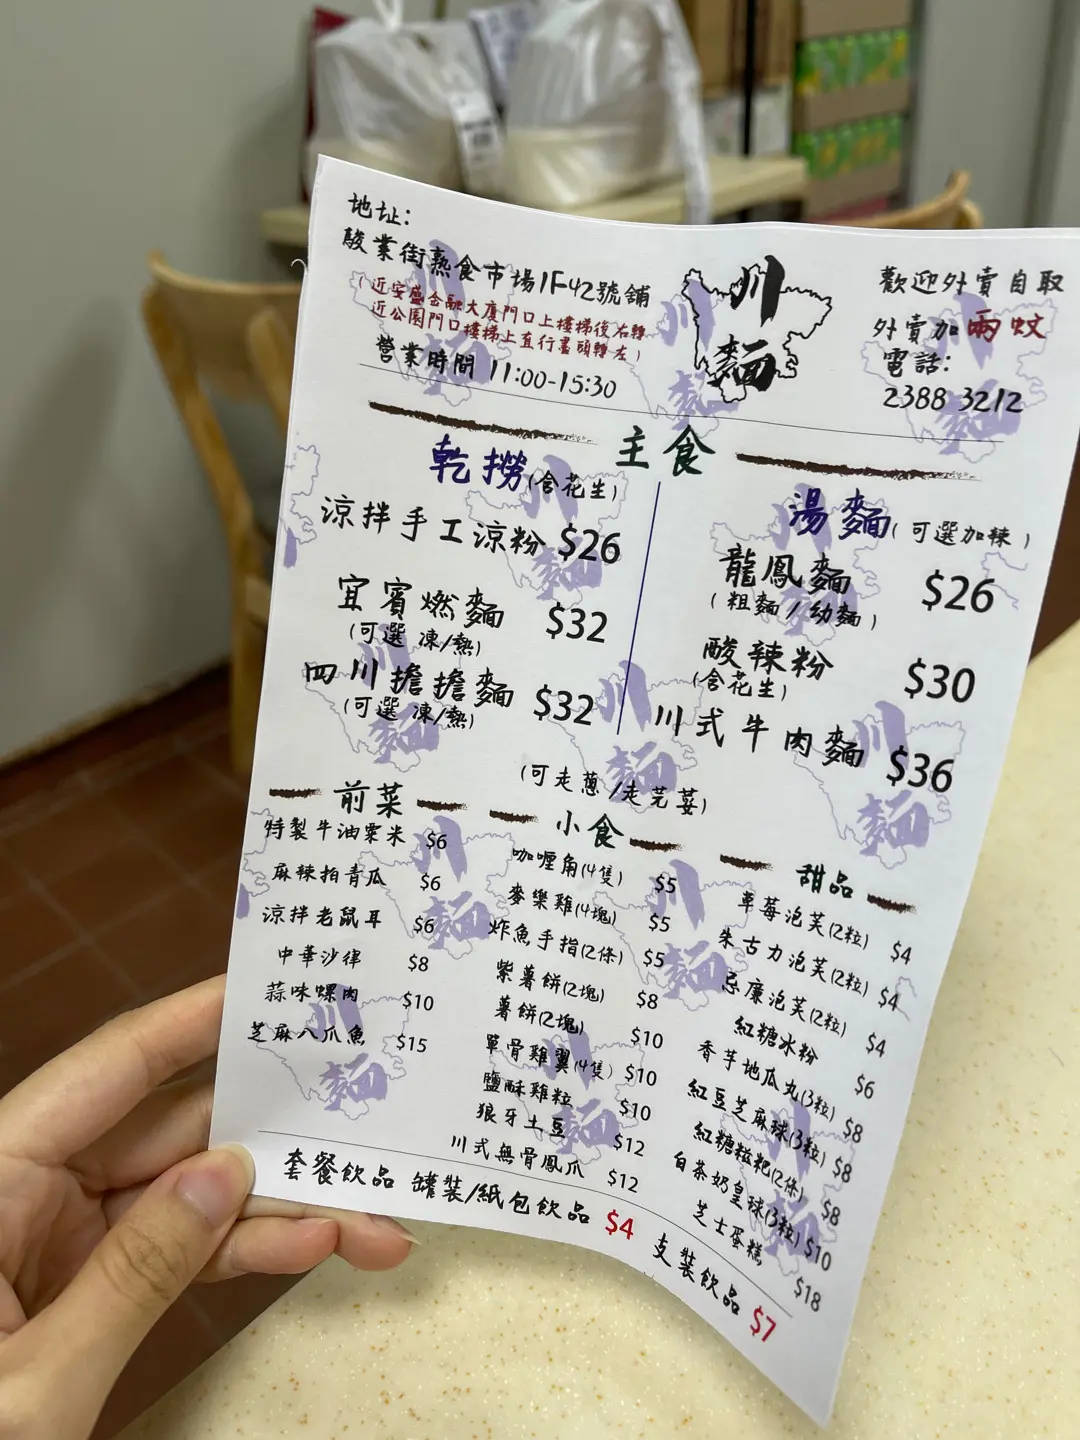 地址:
駿業街熟食市場1F42號舖
(近安盛金融大廈門口上樓梯後右轉
近公園門口樓梯上直行盡頭轉左)
營業時間 11:00-15:30
川
麵
歡迎外賣自取
外賣加兩蚊
電話:
2388 3212
主食
乾撈(含花生)
涼拌手工涼粉 $26
宜賓燃麵 $32
(可選 凍/熱)
四川擔擔麵 $32
(可選 凍/熱)
湯麵(可選加辣)
龍鳳麵 $26
(粗麵/幼麵)
酸辣粉 $30
(含花生)
川式牛肉麵 $36
(可走蔥/走芫荽)
前菜
特製牛油粟米 $6
麻辣拍青瓜 $6
涼拌老鼠耳 $6
中華沙律 $8
蒜味螺肉 $10
芝麻八爪魚 $15
小食
咖喱角(4隻) $5
麥樂雞(4塊) $5
炸魚手指(2條) $5
紫薯餅(2塊) $8
薯餅(2塊) $10
單骨雞翼(4隻) $10
鹽酥雞粒 $10
狼牙土豆 $12
川式無骨鳳爪 $12
甜品
草莓泡芙(2粒) $4
朱古力泡芙(2粒) $4
忌廉泡芙(2粒) $4
紅糖冰粉 $6
香芋地瓜丸(3粒) $8
紅豆芝麻球(3粒) $8
紅糖糍粑(2條) $8
白茶奶皇球(3粒) $10
芝士蛋糕 $18
套餐飲品 罐裝/紙包飲品 $4 支裝飲品 $7